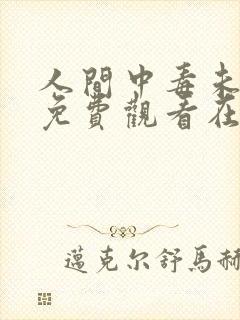 人間中毒未
免費觀看在
邁克尔舒馬赫